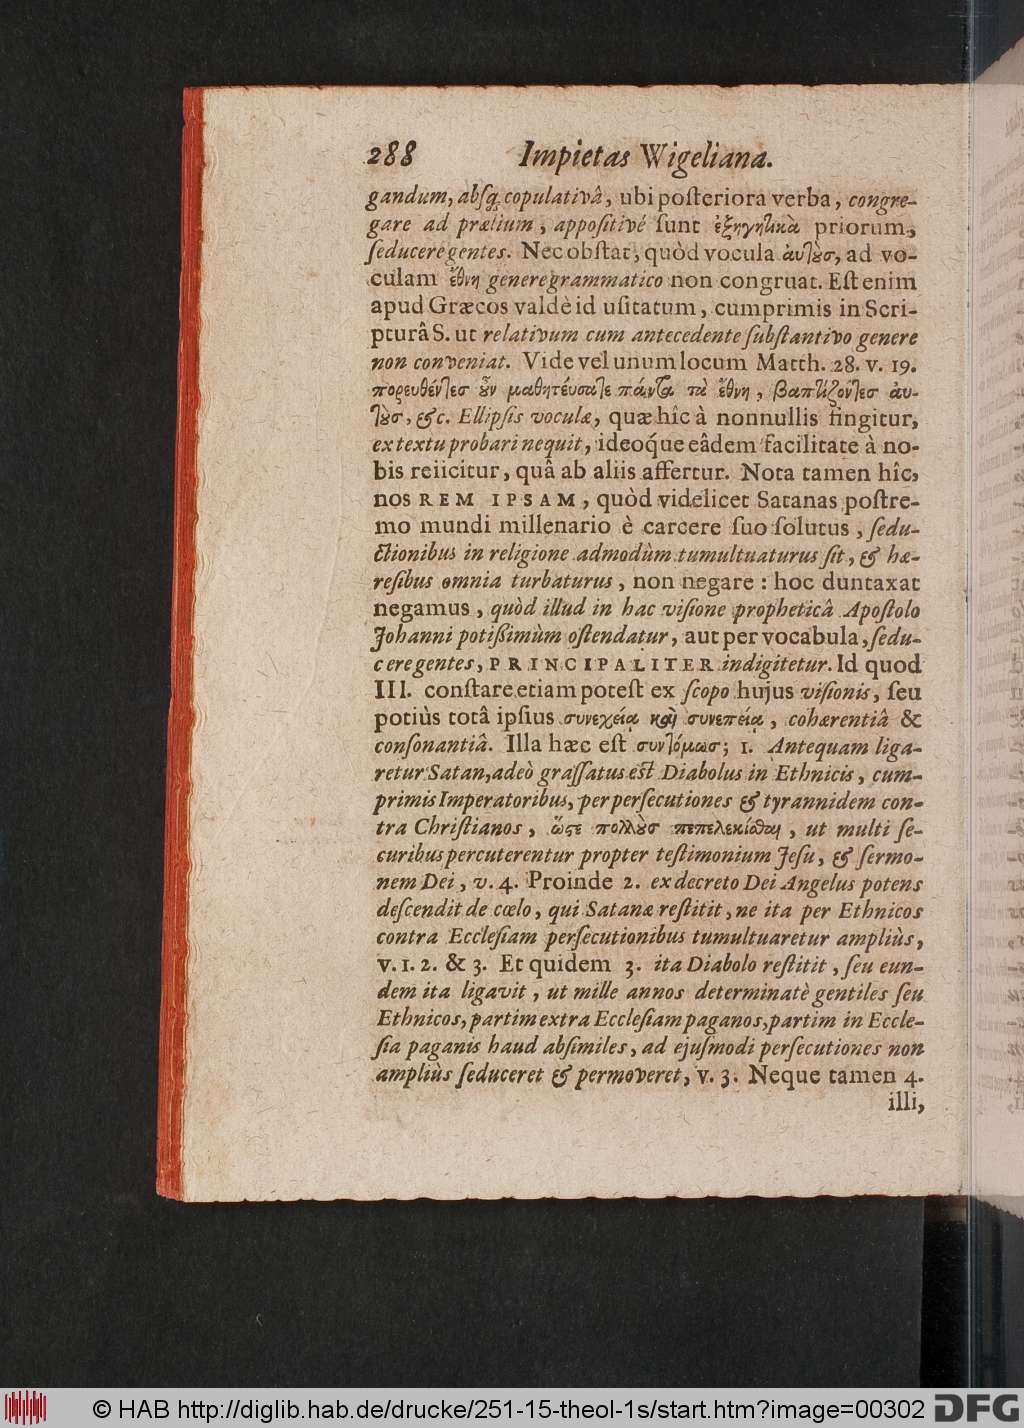 288 Impietas Wigeliana.
gandum, absq́; copulativâ, ubi posteriora verba, congre-
gare ad prælium, appositivé sunt ἐξηγητικὰ priorum,
seducere gentes. Nec obstat, quòd vocula ἀυτοὺς, ad vo-
culam ἔθνη genere grammatico non congruat. Est enim
apud Græcos valdè id usitatum, cumprimis in Scri-
pturâ S. ut relativum cum antecedente substantivo genere
non conveniat. Vide vel unum locum Matth. 28. v. 19.
πορευθέντες οὖν μαθητέυσατε πάντα τὰ ἔθνη, βαπτίζοντες ἀυ-
τοὺς, &c. Ellipsis voculæ, quæ hîc à nonnullis fingitur,
ex textu probari nequit, ideoq́ue eâdem facilitate à no-
bis reiicitur, quâ ab aliis affertur. Nota tamen hîc,
nos REM IPSAM, quòd videlicet Satanas postre-
mo mundi millenario è carcere suo solutus, sedu-
ctionibus in religione admodùm tumultuaturus sit, & hæ-
resibus omnia turbaturus, non negare: hoc duntaxat
negamus, quòd illud in hac visione propheticâ Apostolo
Johanni potißimùm ostendatur, aut per vocabula, sedu-
cere gentes, PRINCIPALITER indigitetur. Id quod
III. constare etiam potest ex scopo hujus visionis, seu
potiùs totâ ipsius συνεχείᾳ καὶ συνεπείᾳ, cohærentiâ &
consonantiâ. Illa hæc est συντόμως; 1. Antequam liga-
retur Satan, adeò grassatus est Diabolus in Ethnicis, cum-
primis Imperatoribus, per persecutiones & tyrannidem con-
tra Christianos, ὥστε πολλοὺς πεπελεκίσθαι, ut multi se-
curibus percuterentur propter testimonium Jesu, & sermo-
nem Dei, v. 4. Proinde 2. ex decreto Dei Angelus potens
descendit de cœlo, qui Satanæ restitit, ne ita per Ethnicos
contra Ecclesiam persecutionibus tumultuaretur ampliùs,
v. 1. 2. & 3. Et quidem 3. ita Diabolo restitit, seu eun-
dem ita ligavit, ut mille annos determinatè gentiles seu
Ethnicos, partim extra Ecclesiam paganos, partim in Eccle-
sia paganis haud absimiles, ad ejusmodi persecutiones non
ampliùs seduceret & permoveret, v. 3. Neque tamen 4.
illi,
© HAB http://diglib.hab.de/drucke/251-15-theol-1s/start.htm?image=00302
DFG